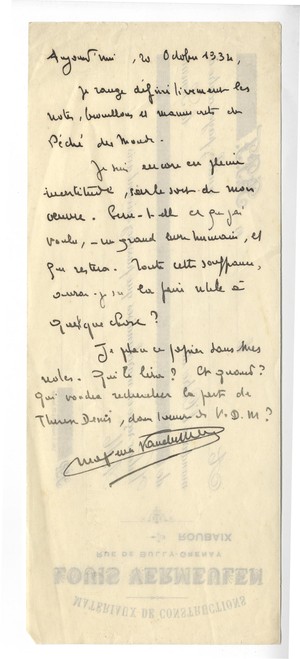 Aujourd'hui, 20 Octobre 1934,
Je range définitivement les
notes, brouillons et manuscrits du
Péché du Monde.
Je suis encore en pleine
incertitude, sur le sort de mon
œuvre. Sera-t-elle ce que j'ai
voulu, un grand livre humain, et
qui restera. Toute cette souffrance,
aurai-je su la faire utile à
quelque chose?
Je place ce papier dans mes
notes. Qui le lira? Et quand?
Qui voudra rechercher la part de
Thérèse Denis, dans l'œuvre de V.D.M?
Maxence Van der Meersch
ROUBAIX
LOUIS VERMEULEN
MATÉRIAUX DE CONSTRUCTIONS